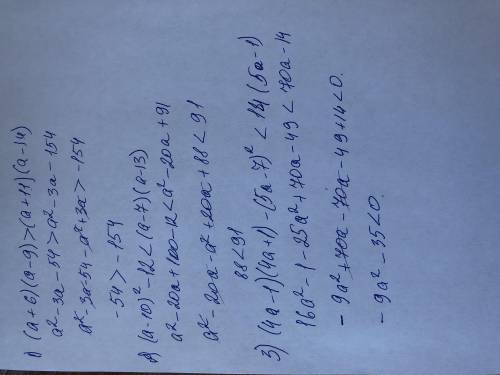 1) (a+6)(a-9)>(a+11)(a-14)
a²-3a-54>a²-3a-154
a²-3a-54-a²+3a>-154
-54>-154
2) (a-10)²-12<(a-7)(a-13)
a²-20a+100-12<a²-20a+91
a²-20a-a²+20a+88<91
88<91
3) (4a-1)(4a+1)-(5a-7)²<14(5a-1)
16a²-1-25a²+70a-49<70a-14
-9a²+70a-70a-49+14<0.
-9a²-35<0.